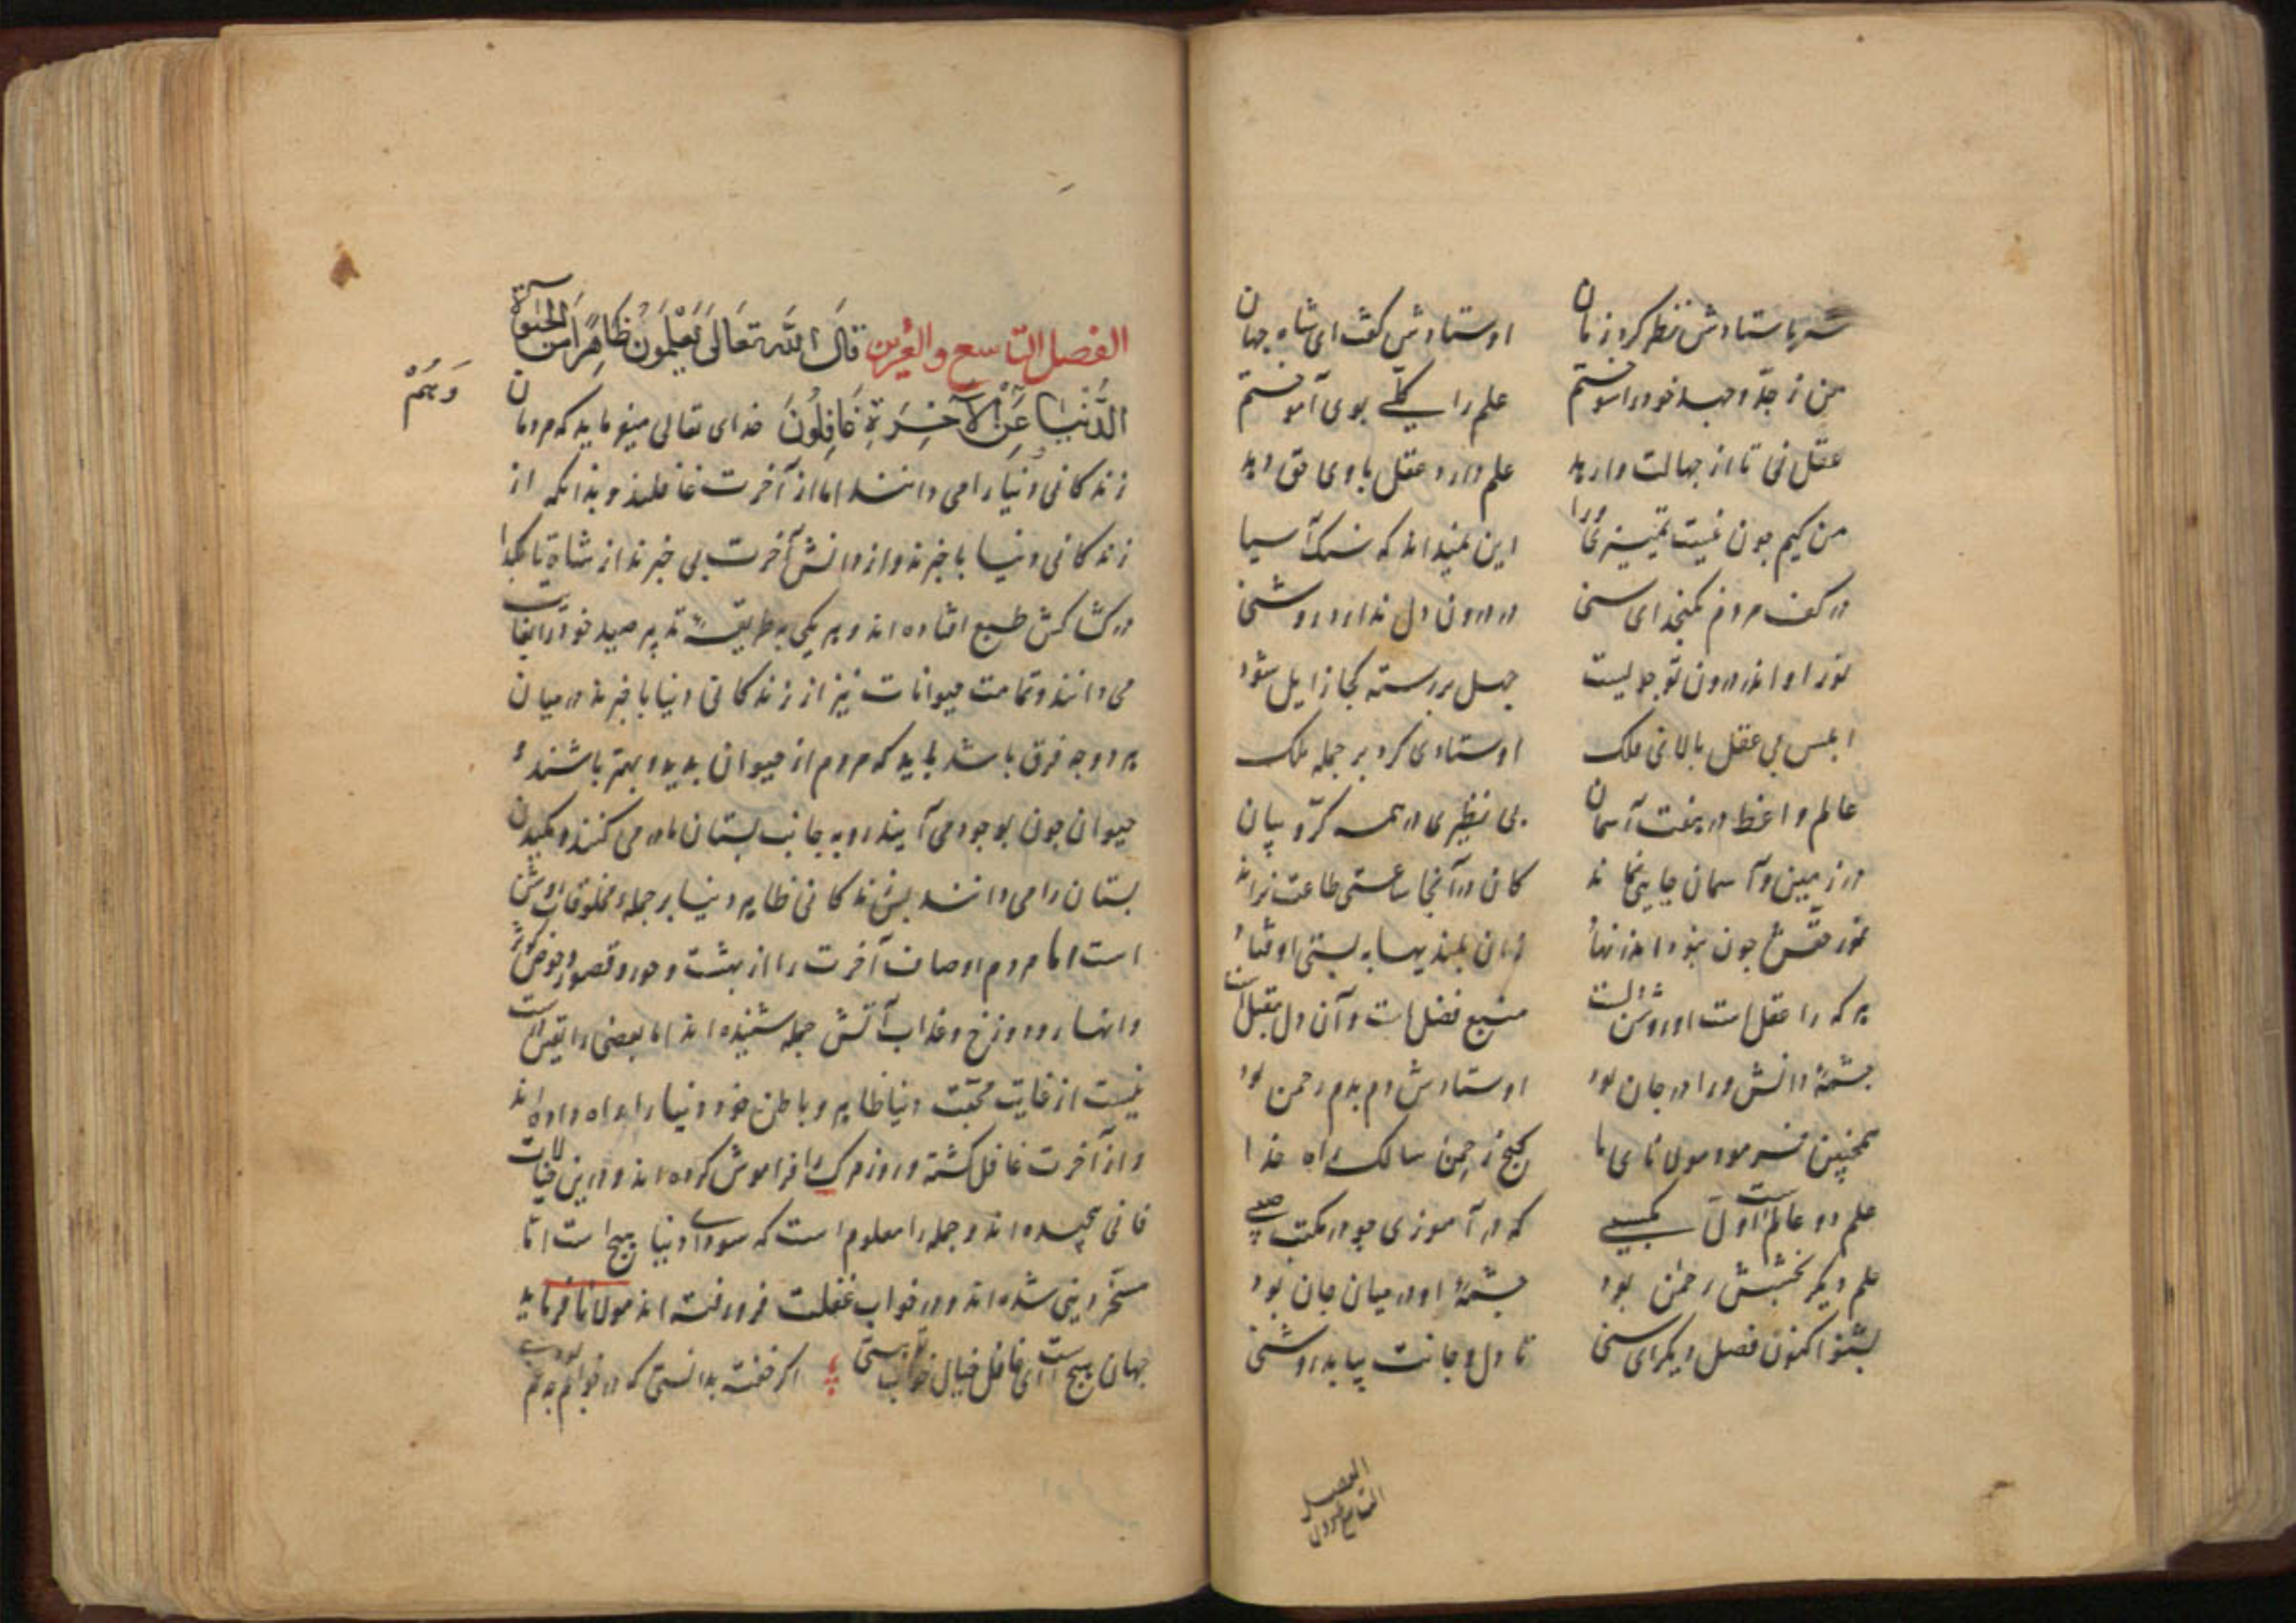 شه باستادش نظر کرد ان زمان اوستادش کفت ای شاه جهان
من ز جدّ و جهد خود را سوختم علم را کلّی بوی آموختم
عقل نی تا از جهالت وارهد علم دارد عقل باوی حق دهد
من کیم چون نیست تمییزی ورا این نمیداند که سنک آسیا
در کف مردم نکنجد ای سنی در درون دل ندارد روشنی
نور او اندر درون تو جو لیست جهل بررسته کجا زایل شود
ابلیس بی عقل بالای فلک اوستادی کرد بر جمله ملک
عالم و اعظ در هفت آسمان بی نظیری در همه کرّوبیان
در زمین و آسمان جایی نماند کان در آنجا ساعتی طاعت نراند
نور حقش چون نبود اندر نهاد زان بلندیها به پستی اوفتاد
هر که را عقل است او روشن دلست منبع فضل است و آن دل مقبل است
چشمهٔ دانش ورا در جان بود اوستادش دم بدم رحمن بود
همچنین فرمود مولانای ما کنج رحمن سالک راه خدا
علم دو عالم است اوّل مکسبی که در آموزی چو در مکتب صبی
علم دیکر بخشش رحمن بود چشمهٔ او در میان جان بود
بشنو اکنون فصل دیکر ای سنی تا دل و جانت بیابد روشنی
الفصل التاسع والعشرون
الفصل التاسع والعشرین قال الله تعالی یَعْلَمُونَ ظَاهِرًا مِنَ الْحَیٰوةِ
الدُّنْیَا عَنِ الْآخِرَةِ غَافِلُونَ خدای تعالی میفرماید که مردمان
وَهُمْ
زندکانی دنیا را می دانند اما از آخرت غافلند و بدانکه از
زندکانی دنیا باخبرند و از دانش آخرت بی خبرند از شاه تا بکدا
در کشاکش طبع افتاده اند و هر یکی بر طریقهٔ تدبیر صید خود را بغایت
می دانند و تمامت حیوانات نیز از زندکانی دنیا باخبرند در میان
هر دو چه فرق باشد باید که مردم از حیوان بدید و بهتر باشند و
حیوان چون بوجود می آیند رو به جانب پستان مادر می کنند و مکیدن
پستان را می دانند پس زندکانی ظاهر دنیا بر جمله مخلوقات روشن
است اما مردم اوصاف آخرت را از بهشت و حور و قصور و حوض کوثر
و انهار و دوزخ و عذاب آتش جمله شنیده اند اما بعضی را یقین
نیست از غایت محبّت دنیا ظاهر و باطن خود دنیا را راه داده اند
و از آخرت غافل کشته و روز مرک را فراموش کرده اند و درین خیالات
فانی پیچیده اند و جمله را معلوم است که سودای دنیا هیچ است امّا
مسخّر دنیی شده اند و در خواب غفلت فرو رفته اند مولانا فرماید
جهان هیچ است ای غافل خیال خواب پنداری اکر خفته بدانستی که در خوابم